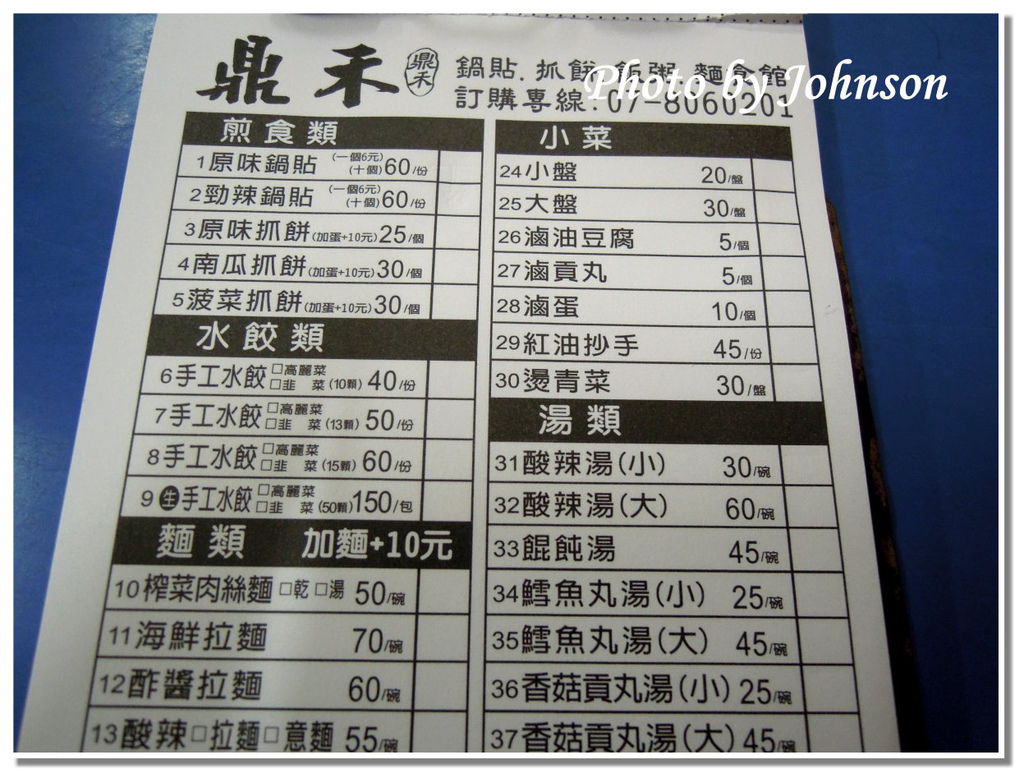 鼎禾 鼎禾 鍋貼.抓餅.飯粥.麵食館
訂購專線:07-8060201
Photo by Johnson
煎食類
1原味鍋貼 (一個6元)(十個)60/份
2勁辣鍋貼 (一個6元)(十個)60/份
3原味抓餅(加蛋+10元)25/個
4南瓜抓餅(加蛋+10元)30/個
5菠菜抓餅(加蛋+10元)30/個
水餃類
6手工水餃 □高麗菜 □韭菜(10顆) 40/份
7手工水餃 □高麗菜 □韭菜(13顆) 50/份
8手工水餃 □高麗菜 □韭菜(15顆) 60/份
9生手工水餃 □高麗菜 □韭菜(50顆)150/包
麵類 加麵+10元
10榨菜肉絲麵 □乾 □湯 50/碗
11海鮮拉麵 70/碗
12酢醬拉麵 60/碗
13酸辣□拉麵□意麵 55/碗
小菜
24小盤 20/盤
25大盤 30/盤
26滷油豆腐 5/個
27滷貢丸 5/個
28滷蛋 10/個
29紅油抄手 45/份
30燙青菜 30/盤
湯類
31酸辣湯(小) 30/碗
32酸辣湯(大) 60/碗
33餛飩湯 45/碗
34鱈魚丸湯(小) 25/碗
35鱈魚丸湯(大) 45/碗
36香菇貢丸湯(小) 25/碗
37香菇貢丸湯(大) 45/碗